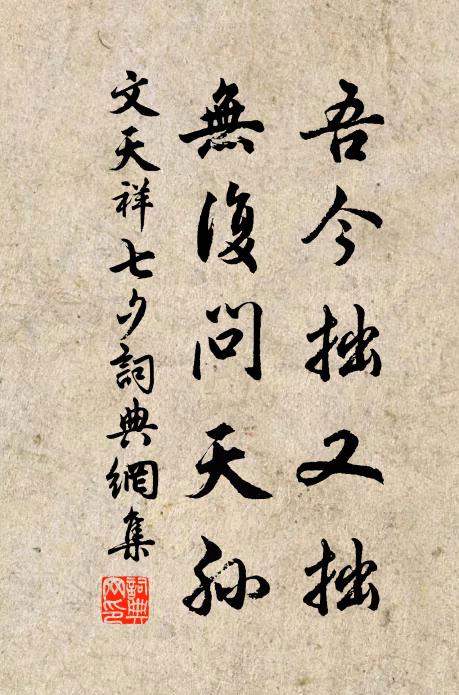 吾今拙又拙
無復問天孫
文天祥七夕詞典網集
詞典
網印